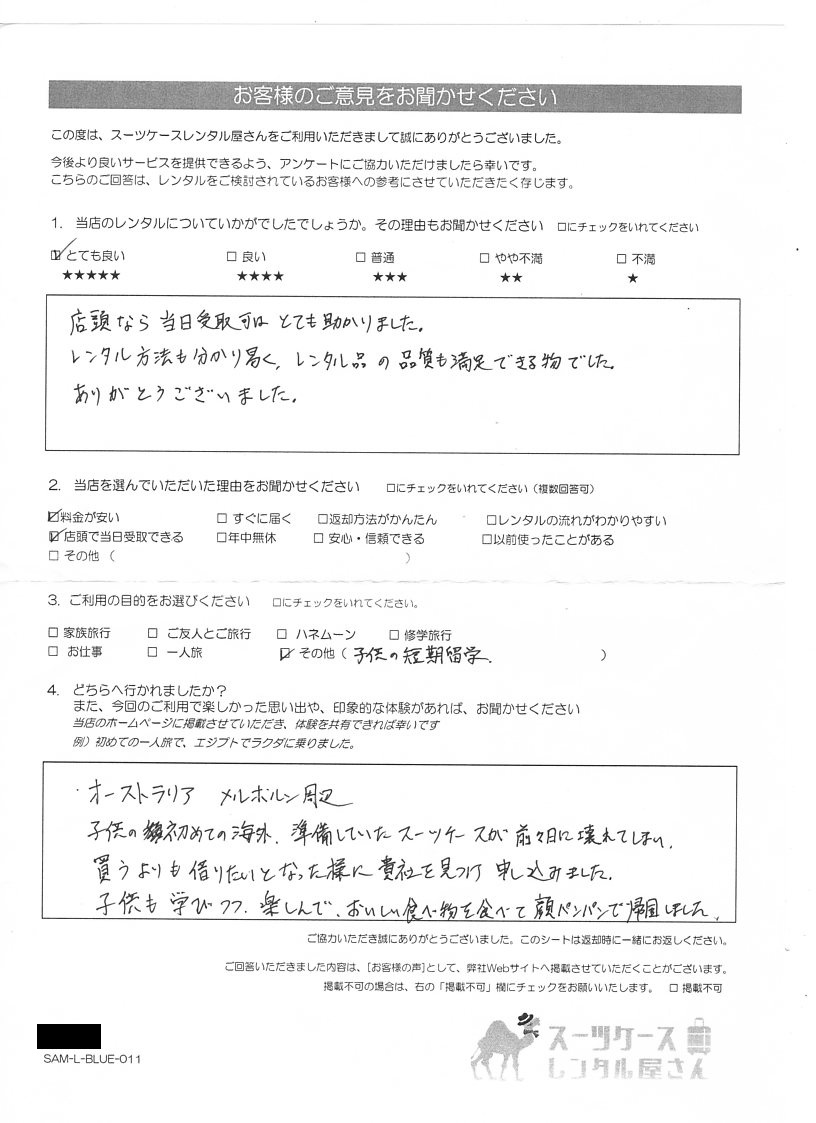 お客様のご意見をお聞かせください
この度は、スーツケースレンタル屋さんをご利用いただきまして誠にありがとうございました。
今後より良いサービスを提供できるよう、アンケートにご協力いただけましたら幸いです。
こちらのご回答は、レンタルをご検討されているお客様への参考にさせていただきたく存じます。
1. 当店のレンタルについていかがでしたでしょうか。その理由もお聞かせください □にチェックをいれてください
☑ とても良い □ 良い □ 普通 □ やや不満 □ 不満
★★★★★ ★★★★ ★★★ ★★ ★
店頭なら当日受取可はとても助かりました。
レンタル方法も分かり易く、レンタル品の品質も満足できる物でした。
ありがとうございました。
2. 当店を選んでいただいた理由をお聞かせください □にチェックをいれてください(複数回答可)
☑料金が安い □ すぐに届く □返却方法がかんたん □レンタルの流れがわかりやすい
☑店頭で当日受取できる □年中無休 □ 安心・信頼できる □以前使ったことがある
□ その他 ( )
3. ご利用の目的をお選びください □にチェックをいれてください。
□ 家族旅行 □ ご友人とご旅行 □ ハネムーン □ 修学旅行
□ お仕事 □ 一人旅 ☑ その他 ( 子供の短期留学. )
4. どちらへ行かれましたか?
また、今回のご利用で楽しかった思い出や、印象的な体験があれば、お聞かせください
当店のホームページに掲載させていただき、体験を共有できれば幸いです
例)初めての一人旅で、エジプトでラクダに乗りました。
・オーストラリア メルボルン周辺
子供の初めての海外、準備していたスーツケースが前々日に壊れてしまい、
買うよりも借りたいとなった様に貴社を見つけ申し込みました。
子供も学びつつ、楽しんで、おいしい食べ物を食べて顔パンパンで帰国しました。
ご協力いただき誠にありがとうございました。このシートは返却時に一緒にお返しください。
ご回答いただきました内容は、[お客様の声]として、弊社Webサイトへ掲載させていただくことがございます。
掲載不可の場合は、右の「掲載不可」欄にチェックをお願いいたします。 □ 掲載不可
SAM-L-BLUE-011
スーツケース
レンタル屋さん